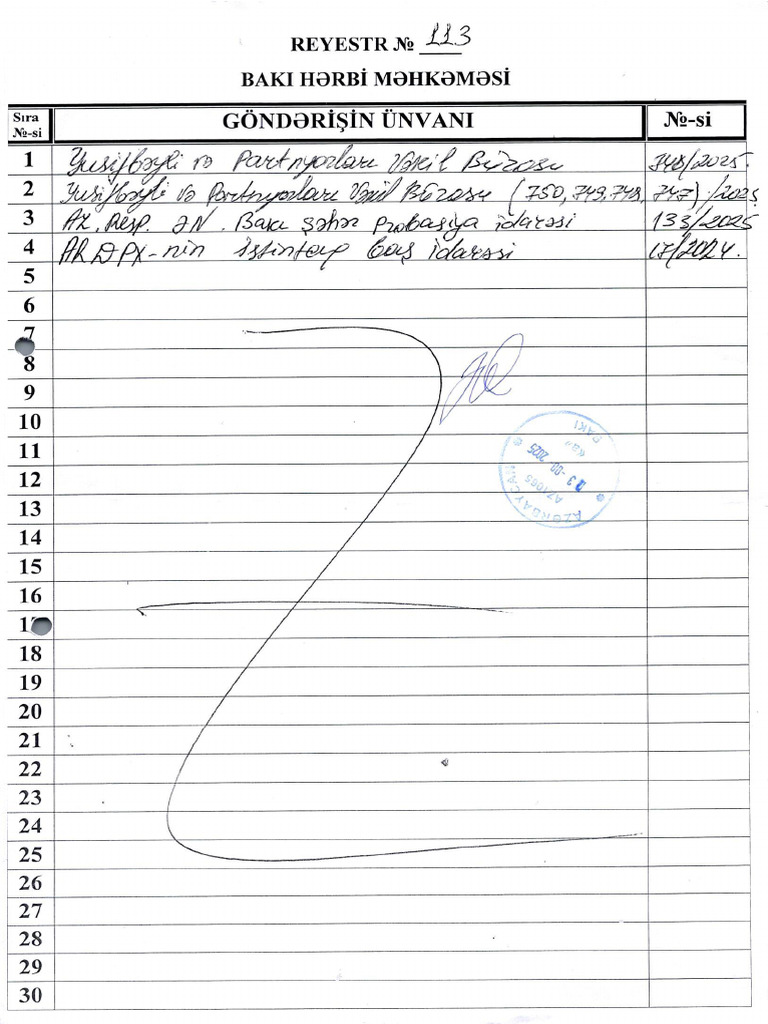 REYESTR № 113
BAKI HƏRBİ MƏHKƏMƏSİ
Sıra №-si GÖNDƏRİŞİN ÜNVANI №-si
1 Yusifbəyli və Partnyorları Vəkil Bürosu 748/2025.
2 Yusifbəyli və Partnyorları Vəkil Bürosu (750, 749, 748, 747)./2025
3 Az. Resp. ƏN. Bakı şəhər Probasiya idarəsi 133/2025
4 AR DTX-nin İstintaq baş idarəsi 17/2024.
5
6
7
8
9
10
11
12
13
14
15
16
17
18
19
20
21
22
23
24
25
26
27
28
29
30
AZƏRBAYCAN
AZ1005
BAKI